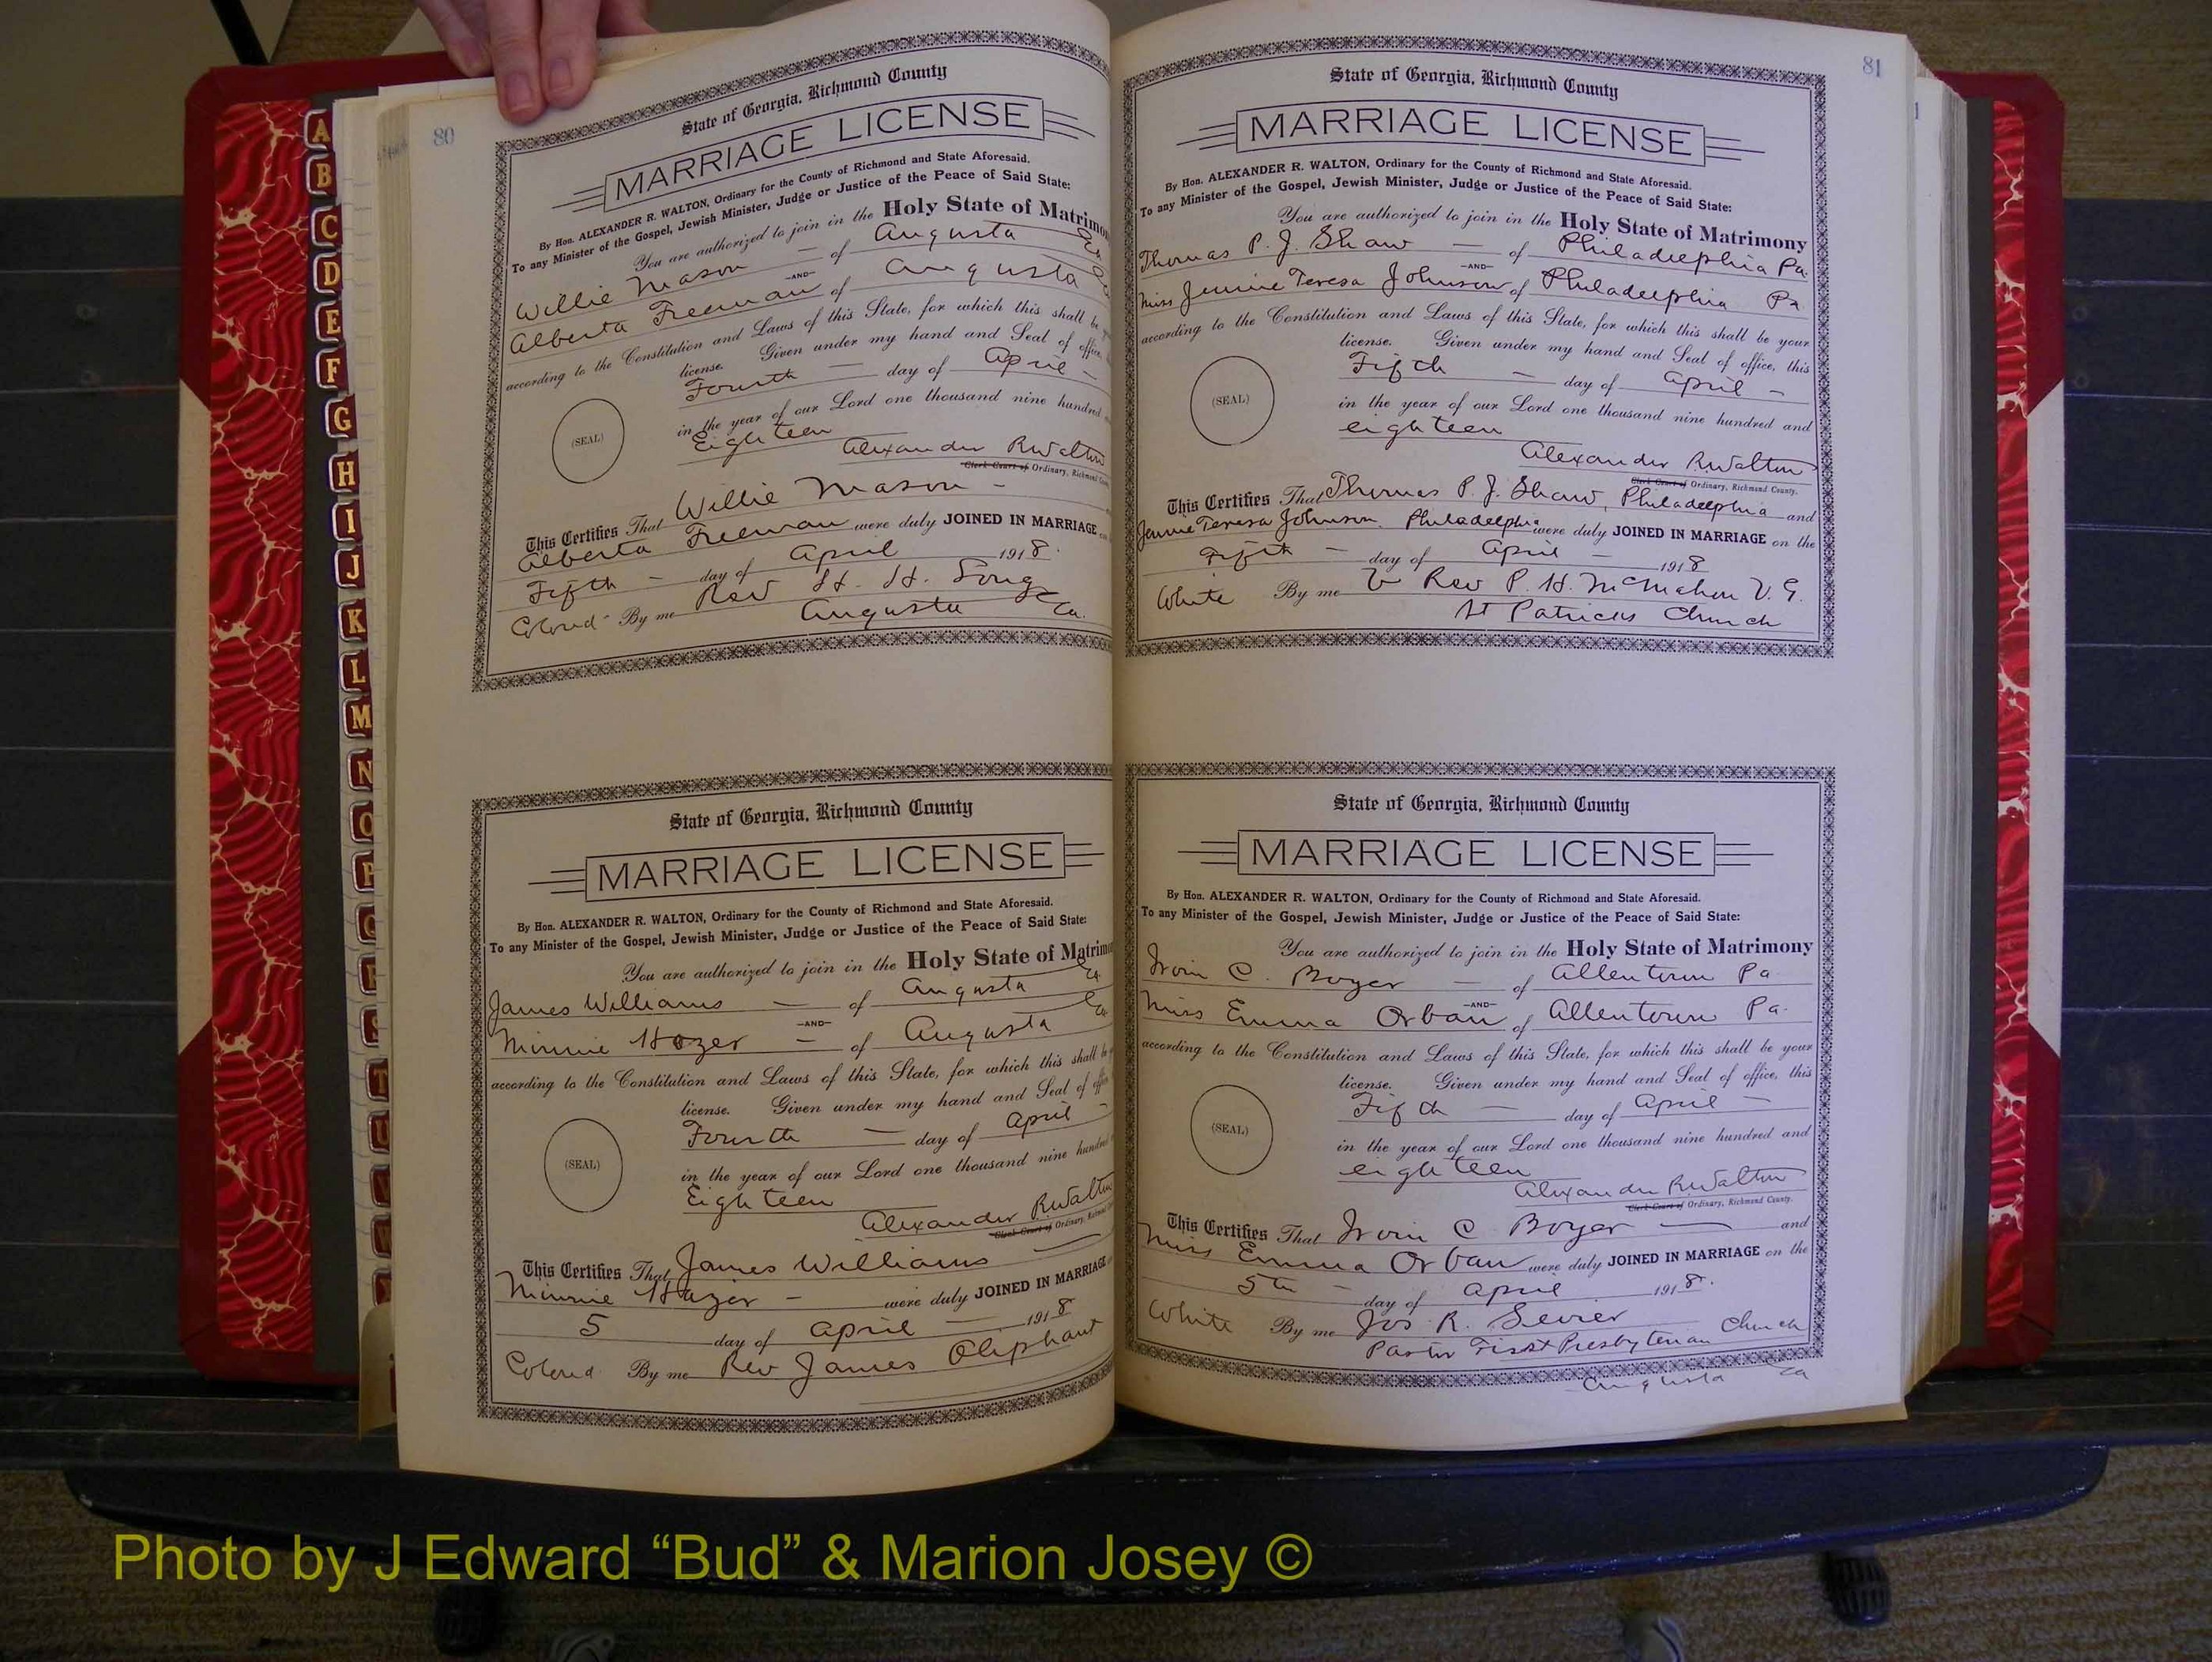 80
State of Georgia, Richmond County
MARRIAGE LICENSE
By Hon. ALEXANDER R. WALTON, Ordinary for the County of Richmond and State Aforesaid.
To any Minister of the Gospel, Jewish Minister, Judge or Justice of the Peace of Said State:
You are authorized to join in the Holy State of Matrimo
Willie Mason — of Augusta Ga
—AND—
Alberta Freeman of Augusta Ga
according to the Constitution and Laws of this State, for which this shall be
license. Given under my hand and Seal of office,
Fourth — day of April —
in the year of our Lord one thousand nine hundred
Eighteen
Alexander R Walton
Clerk Court of Ordinary, Richmond
(SEAL)
This Certifies That Willie Mason —
Alberta Freeman were duly JOINED IN MARRIAGE
Fifth — day of April 1918.
Colored - By me Rev H. H. Long
Augusta Ga.
State of Georgia, Richmond County
MARRIAGE LICENSE
By Hon. ALEXANDER R. WALTON, Ordinary for the County of Richmond and State Aforesaid.
To any Minister of the Gospel, Jewish Minister, Judge or Justice of the Peace of Said State:
You are authorized to join in the Holy State of Matrimo
James Williams — of Augusta Ga.
—AND—
Minnie Hozer — of Augusta Ga.
according to the Constitution and Laws of this State, for which this shall be
license. Given under my hand and Seal of
Fourth — day of April —
in the year of our Lord one thousand nine
Eighteen
Alexander R Walton
Clerk Court of Ordinary,
(SEAL)
This Certifies That James Williams —
Minnie Hozer — were duly JOINED IN MARRIAGE
5 day of April — 1918
Colored By me Rev James Oliphant
81
State of Georgia, Richmond County
MARRIAGE LICENSE
By Hon. ALEXANDER R. WALTON, Ordinary for the County of Richmond and State Aforesaid.
To any Minister of the Gospel, Jewish Minister, Judge or Justice of the Peace of Said State:
You are authorized to join in the Holy State of Matrimony
Thomas P. J. Shaw — of Philadelphia Pa.
—AND—
Miss Jennie Teresa Johnson of Philadelphia Pa
according to the Constitution and Laws of this State, for which this shall be your
license. Given under my hand and Seal of office, this
Fifth — day of April —
in the year of our Lord one thousand nine hundred and
eighteen
Alexander R Walton
Clerk Court of Ordinary, Richmond County.
(SEAL)
This Certifies That Thomas P. J. Shaw, Philadelphia and
Jennie Teresa Johnson Philadelphia were duly JOINED IN MARRIAGE on the
Fifth — day of April — 1918
White By me V Rev P. H. McMahon V. G.
St Patricks Church
State of Georgia, Richmond County
MARRIAGE LICENSE
By Hon. ALEXANDER R. WALTON, Ordinary for the County of Richmond and State Aforesaid.
To any Minister of the Gospel, Jewish Minister, Judge or Justice of the Peace of Said State:
You are authorized to join in the Holy State of Matrimony
Irvin C. Boyer — of Allentown Pa
—AND—
Miss Emma Orban of Allentown Pa.
according to the Constitution and Laws of this State, for which this shall be your
license. Given under my hand and Seal of office, this
Fifth — day of April —
in the year of our Lord one thousand nine hundred and
eighteen
Alexander R Walton
Clerk Court of Ordinary, Richmond County.
(SEAL)
This Certifies That Irvin C Boyer — and
Miss Emma Orban were duly JOINED IN MARRIAGE on the
5th — day of April 1918.
White By me Jos R. Sevier
Pastor First Presbyterian Church
Augusta Ga
A
B
C
D
E
F
G
H
I
J
K
L
M
N
O
P
Q
R
S
T
U
V
W
Photo by J Edward “Bud” & Marion Josey ©